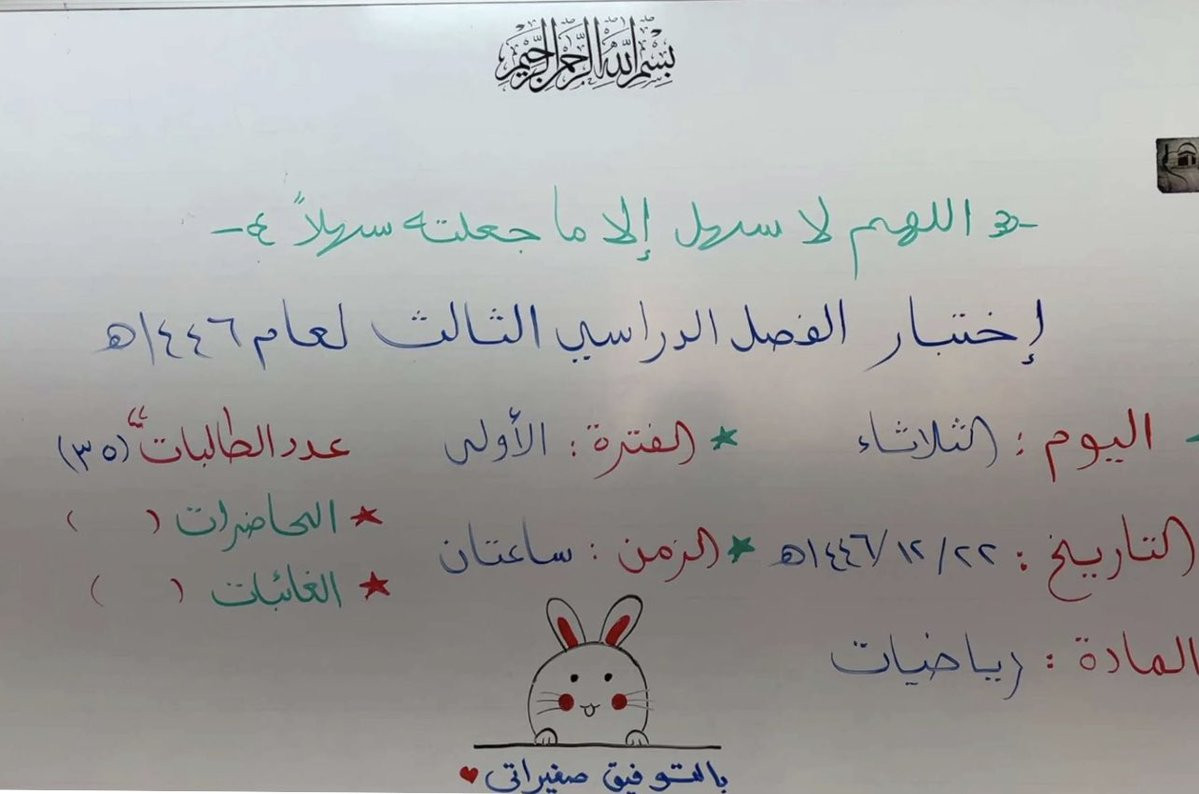 بسم الله الرحمن الرحيم
اللهم لا سهل إلا ما جعلته سهلاً
إختبار الفصل الدراسي الثالث لعام ١٤٤٦ه
اليوم : الثلاثاء ★ الفترة : الأولى عدد الطالبات (٣٥)
★ الحاضرات ( )
التاريخ : ٢٢ / ١٢ / ١٤٤٦ه ★ الزمن : ساعتان
★ الغائبات ( )
المادة : رياضيات
بالتوفيق صغيراتي